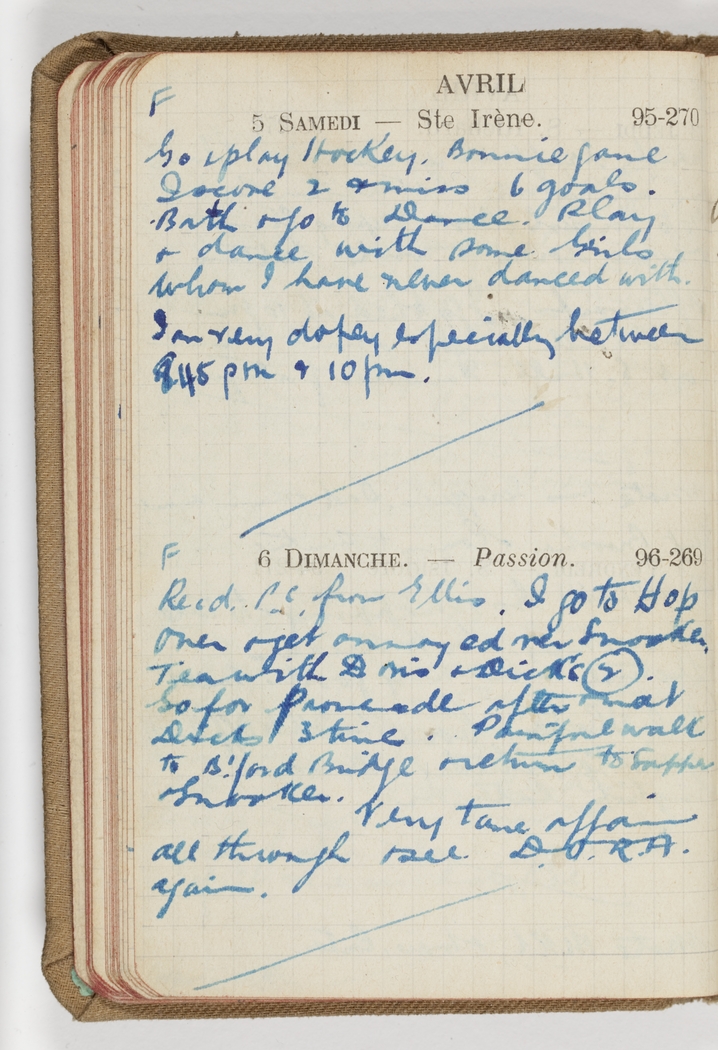 AVRIL
F
5 SAMEDI — Ste Irène. 95-270
Go & play Hockey. Bonnie game
I score 2 & miss 6 goals.
Bath & go to Dance. Play
& dance with some Girls
whom I have never danced with.
I am very dopey especially between
8.45 pm & 10 pm.
F
6 DIMANCHE. — Passion. 96-269
Recd. P.C. from Ellis. I go to Hop
over & get annoyed over Snooker.
Tea with Doris & Dicks (2).
Go for Promenade after & met
Dicks 3 time. Painful walk
to B'ford Bridge & return to Supper
& Snooker.
Very tame affair
all through & see D.O.R.A.
again.